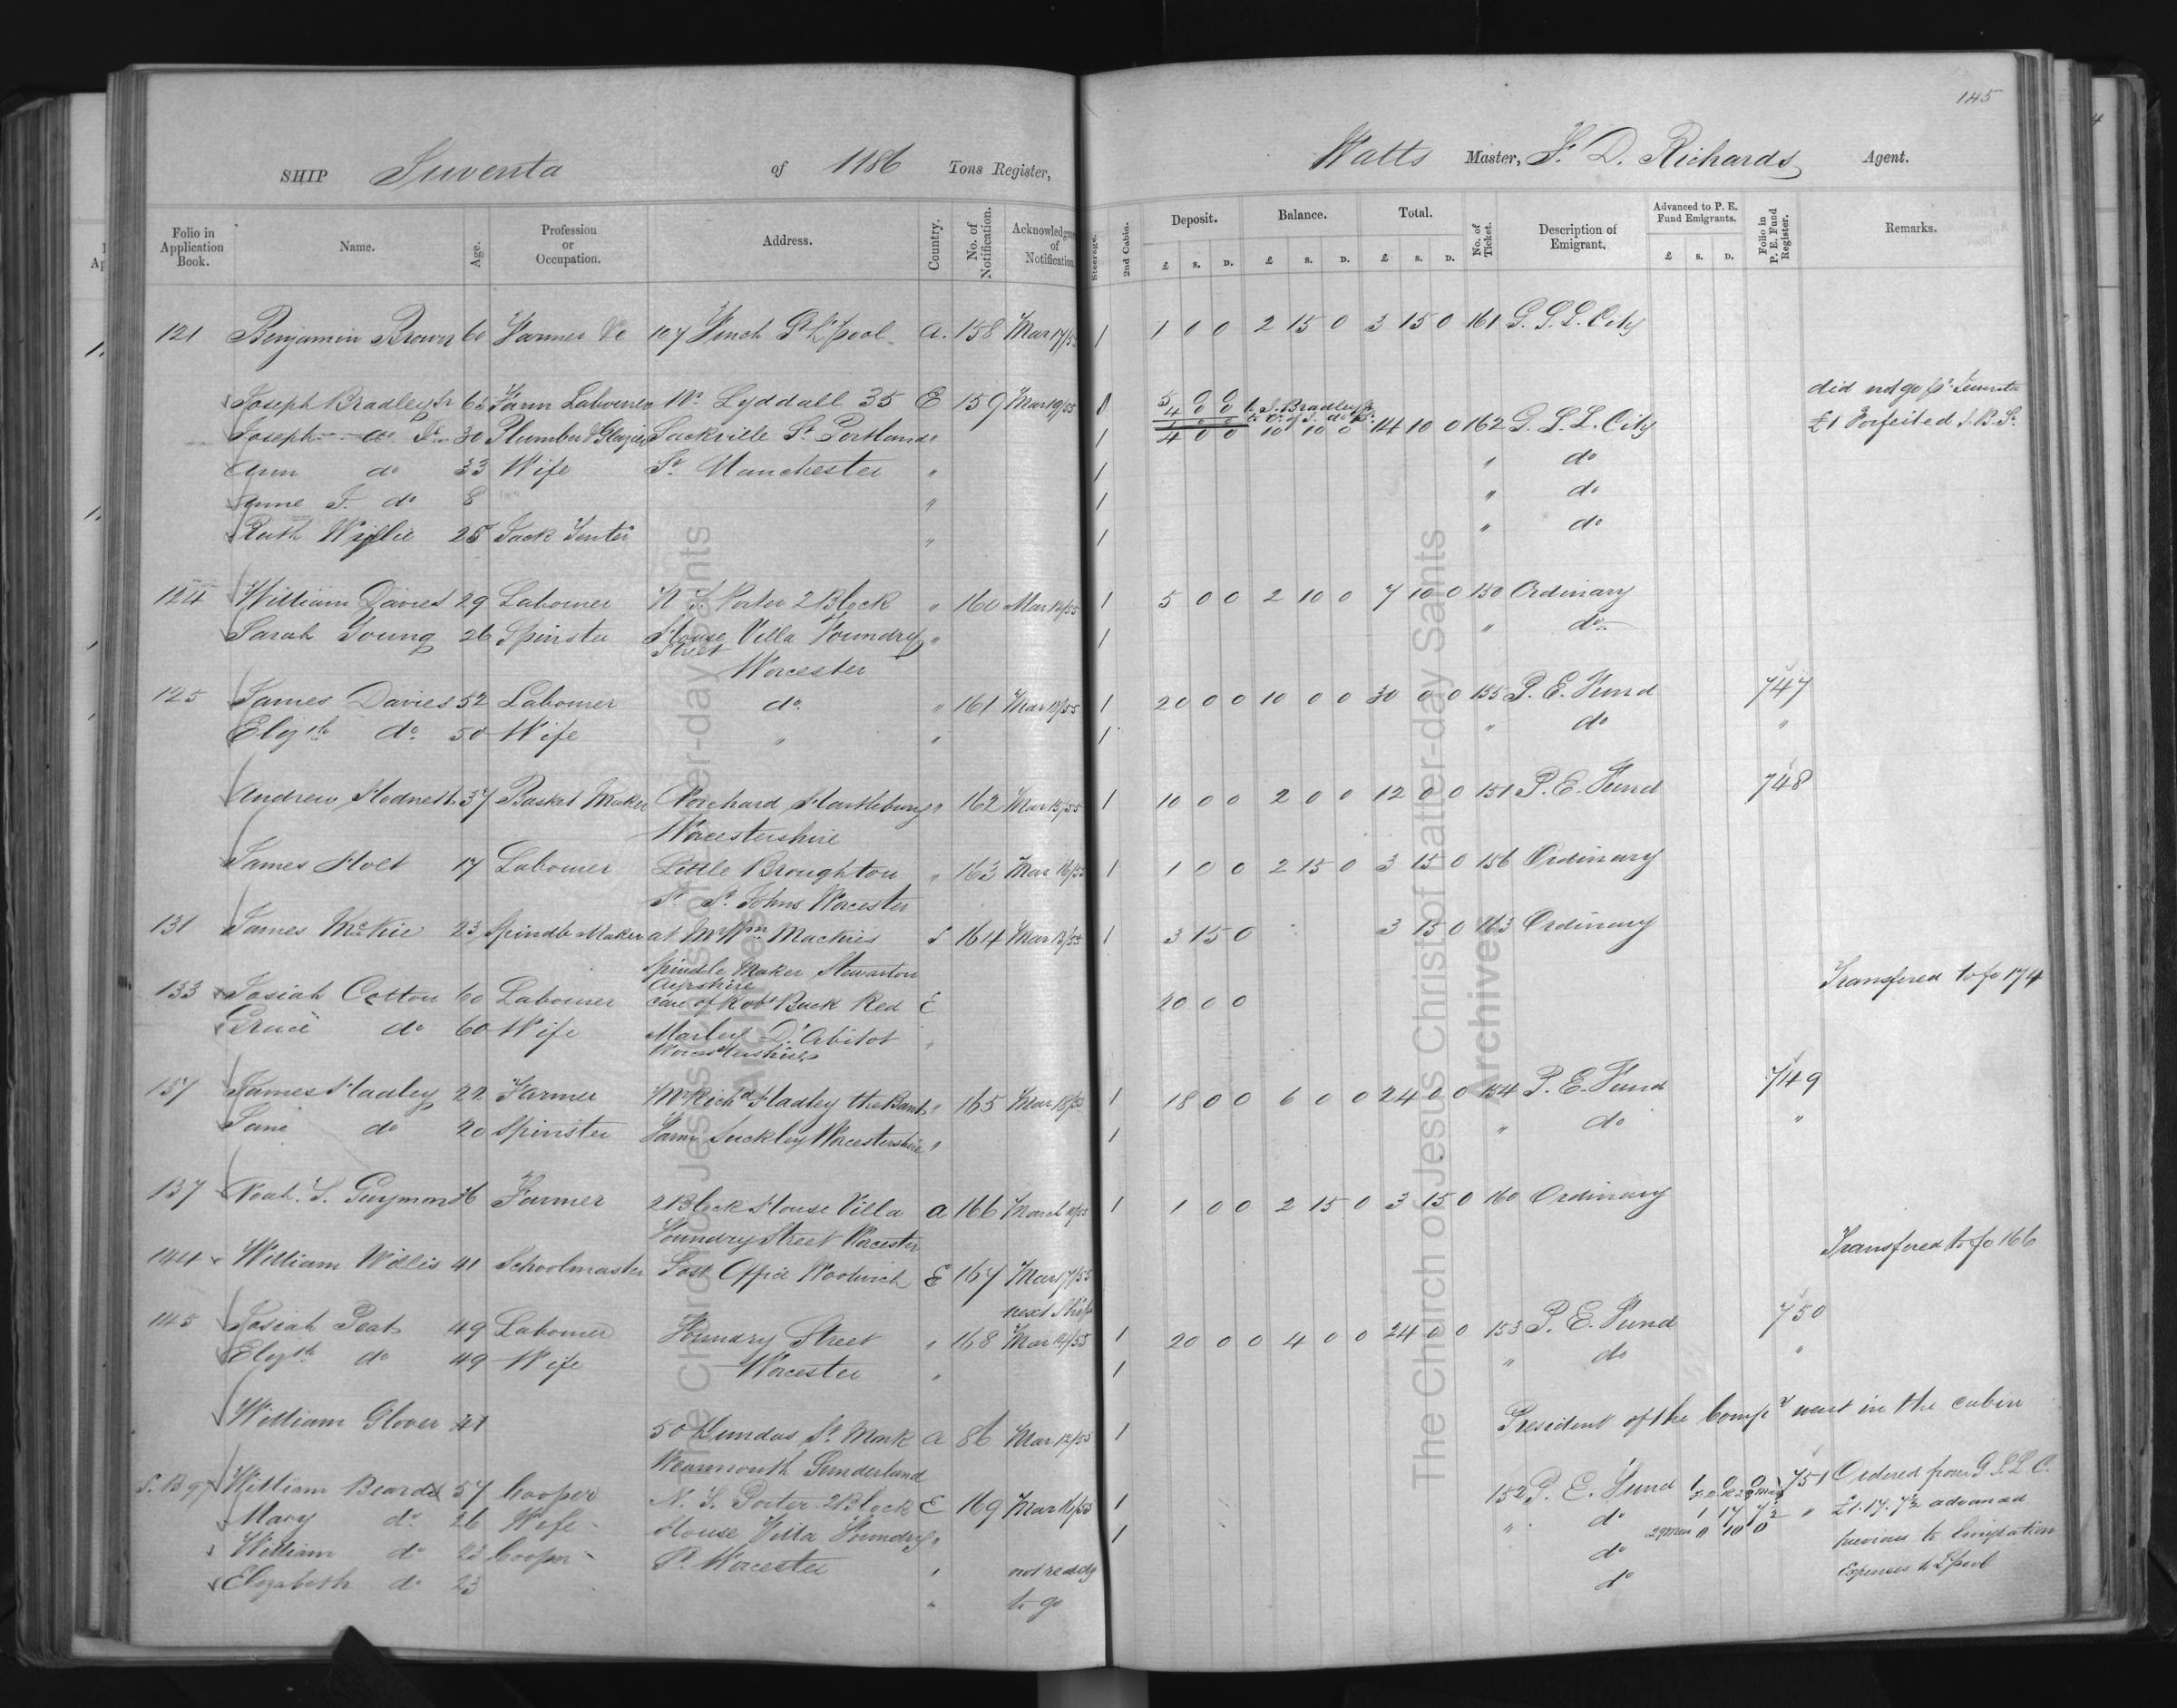 145
SHIP Juventa of 1186 Tons Register, Watts Master, F. D. Richards Agent.
Folio in Application Book. Name. Age. Profession or Occupation. Address. Country. No. of Notification. Acknowledgment of Notification. Steerage. 2nd Cabin. Deposit. £ s. D. Balance. £ s. D. Total. £ s. D. No. of Ticket. Description of Emigrant. Advanced to P. E. Fund Emigrants. £ s. D. Folio in P. E. Fund Register. Remarks.
121 Benjamin Brown 60 Farmer &c 107 Finch St L'pool a. 158 Mar 17/55 1 1 0 0 2 15 0 3 15 0 161 G. S. L. City
Joseph Bradley Sr 65 Farm Labourer Wm Lyddall 35 E 159 Mar 19/55 5 0 0 did not go pr Juventa
Joseph do Jr 30 Plumber & Glazier Sackville St Portland " 1 4 0 0 10 10 0 14 10 0 162 G. S. L. City £1 Forfeited J. B. Sr
Ann do 33 Wife St Manchester " 1 " do
Anne J. do 8 " 1 " do
Ruth Wyllie 25 Jack Tenter " 1 " do
124 William Davies 29 Labourer N T Porter 2 Block " 160 Mar 14/55 1 5 0 0 2 10 0 7 10 0 150 Ordinary
Sarah Young 26 Spinster House Villa Foundry " 1 " do
Street Worcester
125 James Davies 52 Labourer do " 161 Mar 13/55 1 20 0 0 10 0 0 30 0 0 155 P. E. Fund 747
Elizth do 50 Wife " " 1 " do "
Andrew Hodnett 37 Basket Maker Norchard Hartlebury " 162 Mar 15/55 1 10 0 0 2 0 0 12 0 0 151 P. E. Fund 748
Worcestershire
James Holt 17 Labourer Little Broughton " 163 Mar 16/55 1 1 0 0 2 15 0 3 15 0 156 Ordinary
St St Johns Worcester
131 James McKie 23 Spindle Maker at Mr Wm Mackies S 164 Mar 13/55 1 3 15 0 3 15 0 163 Ordinary
Spindle Maker Stewarton
Ayrshire
133 Josiah Cotton 60 Labourer care of Robt Buck Red E 20 0 0 Transfered to fo 174
Grace do 60 Wife Marley D'Abitot "
Worcestershire
137 James Hadley 22 Farmer Mr Richd Hadley the Bank " 165 Mar 18/55 1 18 0 0 6 0 0 24 0 0 154 P. E. Fund 749
Jane do 20 Spinster Farm Suckley Worcestershire " 1 " do "
137 Noah. T. Guymon 36 Farmer 2 Block House Villa a 166 March 1 1 0 0 2 15 0 3 15 0 160 Ordinary
Foundry Street Worcester
144 William Willis 41 Schoolmaster Post Office Woolwich E 167 Mar 17/55 Transfered to fo 166
next Ship
145 Josiah Peat 49 Labourer Foundry Street " 168 Mar 14/55 1 20 0 0 4 0 0 24 0 0 153 P. E. Fund 750
Elizth do 49 Wife Worcester " 1 " do "
William Glover 41 50 Dundas St Monk a 86 Mar 12/55 1 President of the Compy went in the cabin
Wearmouth Sunderland
S. B 97 William Beard 57 Cooper N. T. Porter 2 Block E 169 Mar 14/55 1 152 P. E. Fund 751 Ordered from G. S. L C.
Mary do 26 Wife House Villa Foundry " 1 " do 1 17 7½ " £1. 17. 7½ advanced
William do 23 Cooper St Worcester " not ready do 29 Mar 0 10 0 previous to Emigration
Elizabeth do 23 " to go do Expenses to L'pool
The Church of Jesus Christ of Latter-day Saints
Archives
The Church of Jesus Christ of Latter-day Saints
Archives